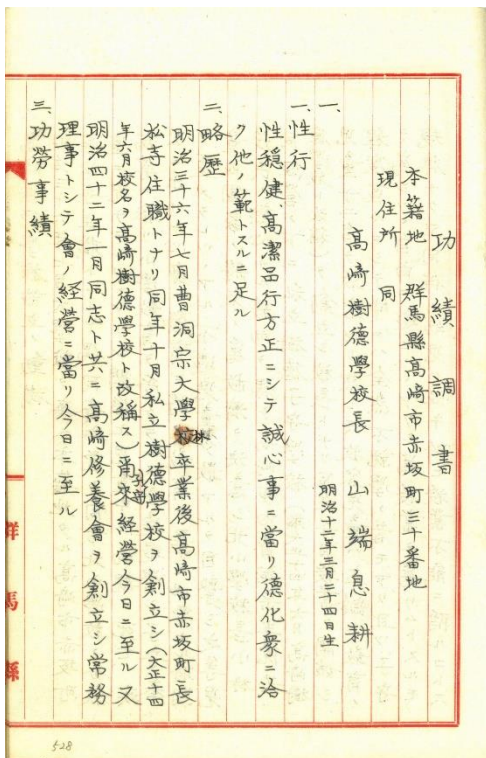 功績調書
本籍地 群馬縣高崎市赤坂町三十番地
現住所 同
高崎樹德學校長 山端息耕
明治十二年三月二十四日生
一、
一、性行
性穩健、高潔品行方正ニシテ誠心事ニ當リ德化衆ニ洽
ク他ノ範トスルニ足ル
二、略歴
明治三十六年七月曹洞宗大學林卒業後高崎市赤坂町長
松寺住職トナリ同年十月私立樹德學校ヲ創立シ(大正十四
年六月校名ヲ高崎樹德學校ト改稱ス)爾來經營今日ニ至ル又
明治四十二年一月同志ト共ニ高崎修養會ヲ創立シ常務
理事トシテ會ノ經營ニ當リ今日ニ至ル
三、功勞事績
群馬縣
528